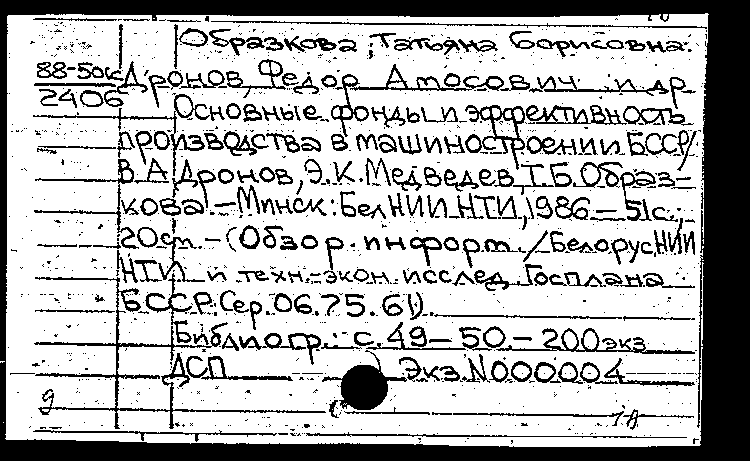 Образкова, Татьяна Борисовна.
88-50к Дронов, Федор Амосович и др
2406
Основные фонды и эффективность
производства в машиностроении БССР/
В.А Дронов, Э.К.Медведев, Т.Б.Образ-
кова.-Минск: БелНИИНТИ, 1986.-51с.;
20см.-(Обзор. информ./БелорусНИИ
НТИ и техн.-экон. исслед. Госплана
БССР.Сер.06.75.61).
Библиогр.: с.49-50.-200экз
ДСП Экз.N000004
9